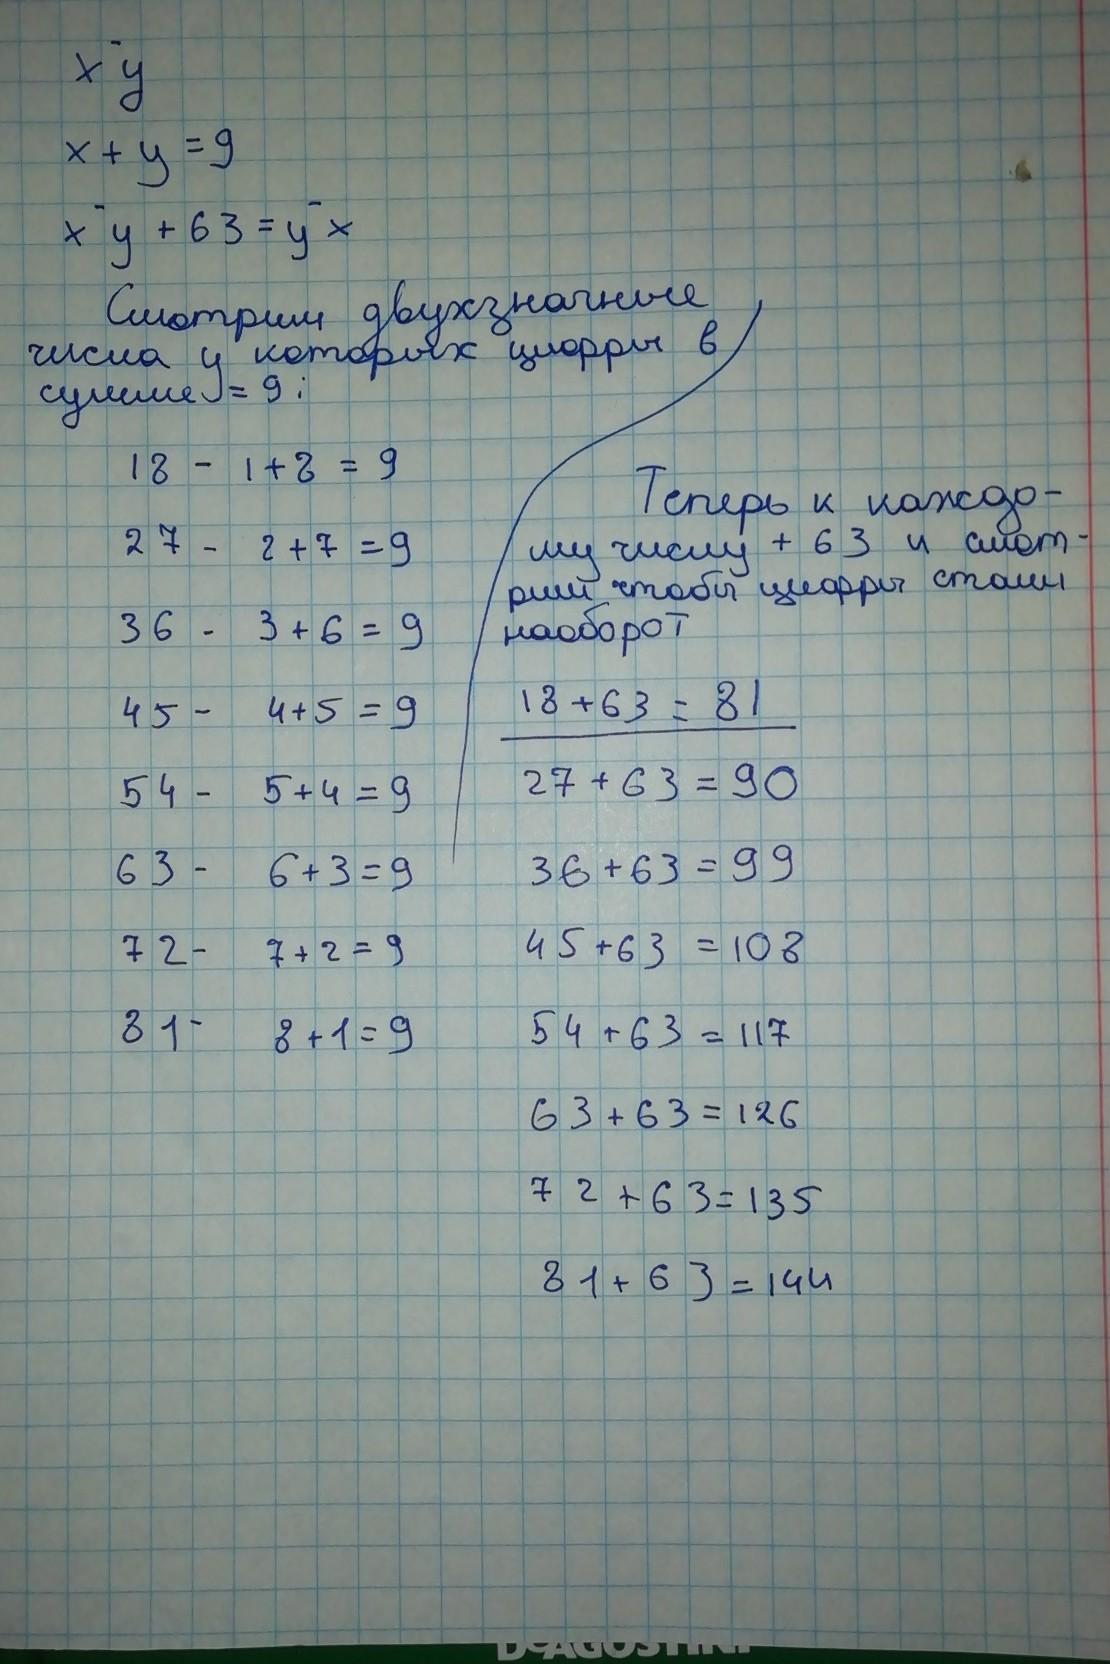 x‾y
x + y = 9
x‾y + 63 = y‾x
Смотрим двухзначные
числа у которых цифры в
сумме = 9:
18 - 1+8 = 9
27 - 2+7 = 9
36 - 3+6 = 9
45 - 4+5 = 9
54 - 5+4 = 9
63 - 6+3 = 9
72 - 7+2 = 9
81 - 8+1 = 9
Теперь к каждо-
му числу + 63 и смот-
рим чтобы цифры стали
наоборот
18 + 63 = 81
27 + 63 = 90
36 + 63 = 99
45 + 63 = 108
54 + 63 = 117
63 + 63 = 126
72 + 63 = 135
81 + 63 = 144
DeAGOSTINI